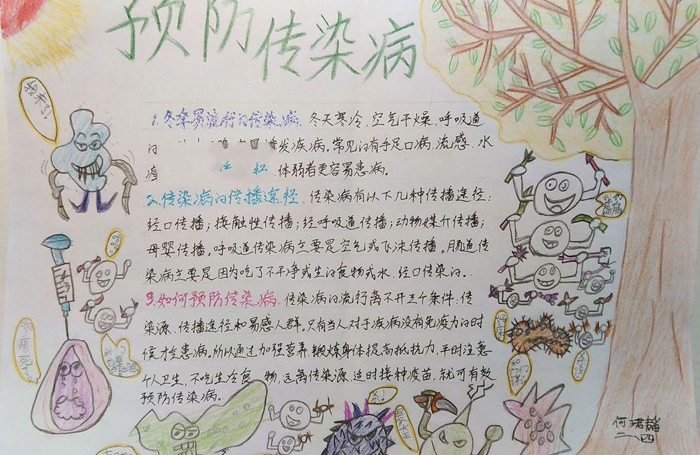 预防传染病
我来了
1.冬季易流行的传染病.冬天寒冷,空气干燥,呼吸道
发疾病.常见的有手足口病,流感.水
体弱者更容易患病.
2.传染病的传播途径.传染病有以下几种传播途径:
经口传播;接触性传播;经呼吸道传播;动物媒介传播;
母婴传播.呼吸道传染病主要是空气或飞沫传播.肠道传
染病主要是因为吃了不干净或生的食物或水,经口传染的.
3.如何预防传染病.传染病的流行离不开三个条件.传
染源,传播途径和易感人群.只有当人对于疾病没有免疫力的时
候才会患病.所以通过加强营养,锻炼身体提高抵抗力,平时注意
个人卫生,不吃生冷食物,远离传染源,适时接种疫苗,就可有效
预防传染病.
痛死
何珺
二四